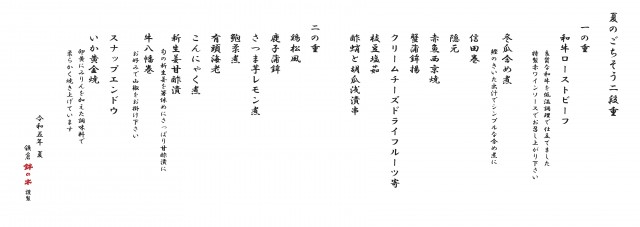 夏のごちそう二段重
一の重
和牛ローストビーフ
良質な和牛を低温調理で仕立てました
特製赤ワインソースでお召し上がり下さい
冬瓜含め煮
鰹のきいた出汁でシンプルな含め煮に
信田巻
隠元
赤魚西京焼
蟹蒲鉾揚
クリームチーズドライフルーツ寄
枝豆塩茹
酢蛸と胡瓜浅漬串
二の重
鶏松風
鹿子蒲鉾
さつま芋レモン煮
鮑柔煮
有頭海老
こんにゃく煮
新生姜甘酢漬
旬の新生姜を箸休めにさっぱり甘酢漬に
牛八幡巻
お好みで山椒をお掛け下さい
スナップエンドウ
いか黄金焼
卵黄にみりんを加えた調味料で
柔らかく焼き上げています
令和五年 夏
鎌倉 鉢の木 謹製